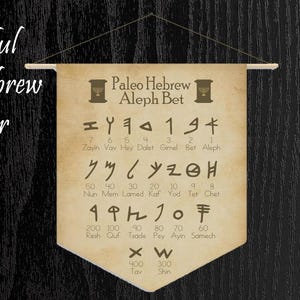 ful
brew
r
Paleo Hebrew
Aleph Bet
𐤀 𐤁 𐤂 𐤃 𐤄 𐤅 𐤆
7 6 5 4 3 2 1
Zayin Vav Hey Dalet Gimel Bet Aleph
𐤇 𐤈 𐤉 𐤊 𐤋 𐤌 𐤍
50 40 30 20 10 9 8
Nun Mem Lamed Kaf Yod Tet Chet
𐤎 𐤏 𐤐 𐤑 𐤒 𐤓
200 100 90 80 70 60
Resh Quf Tsade Pey Ayin Samech
𐤔 𐤕
400 300
Tav Shin